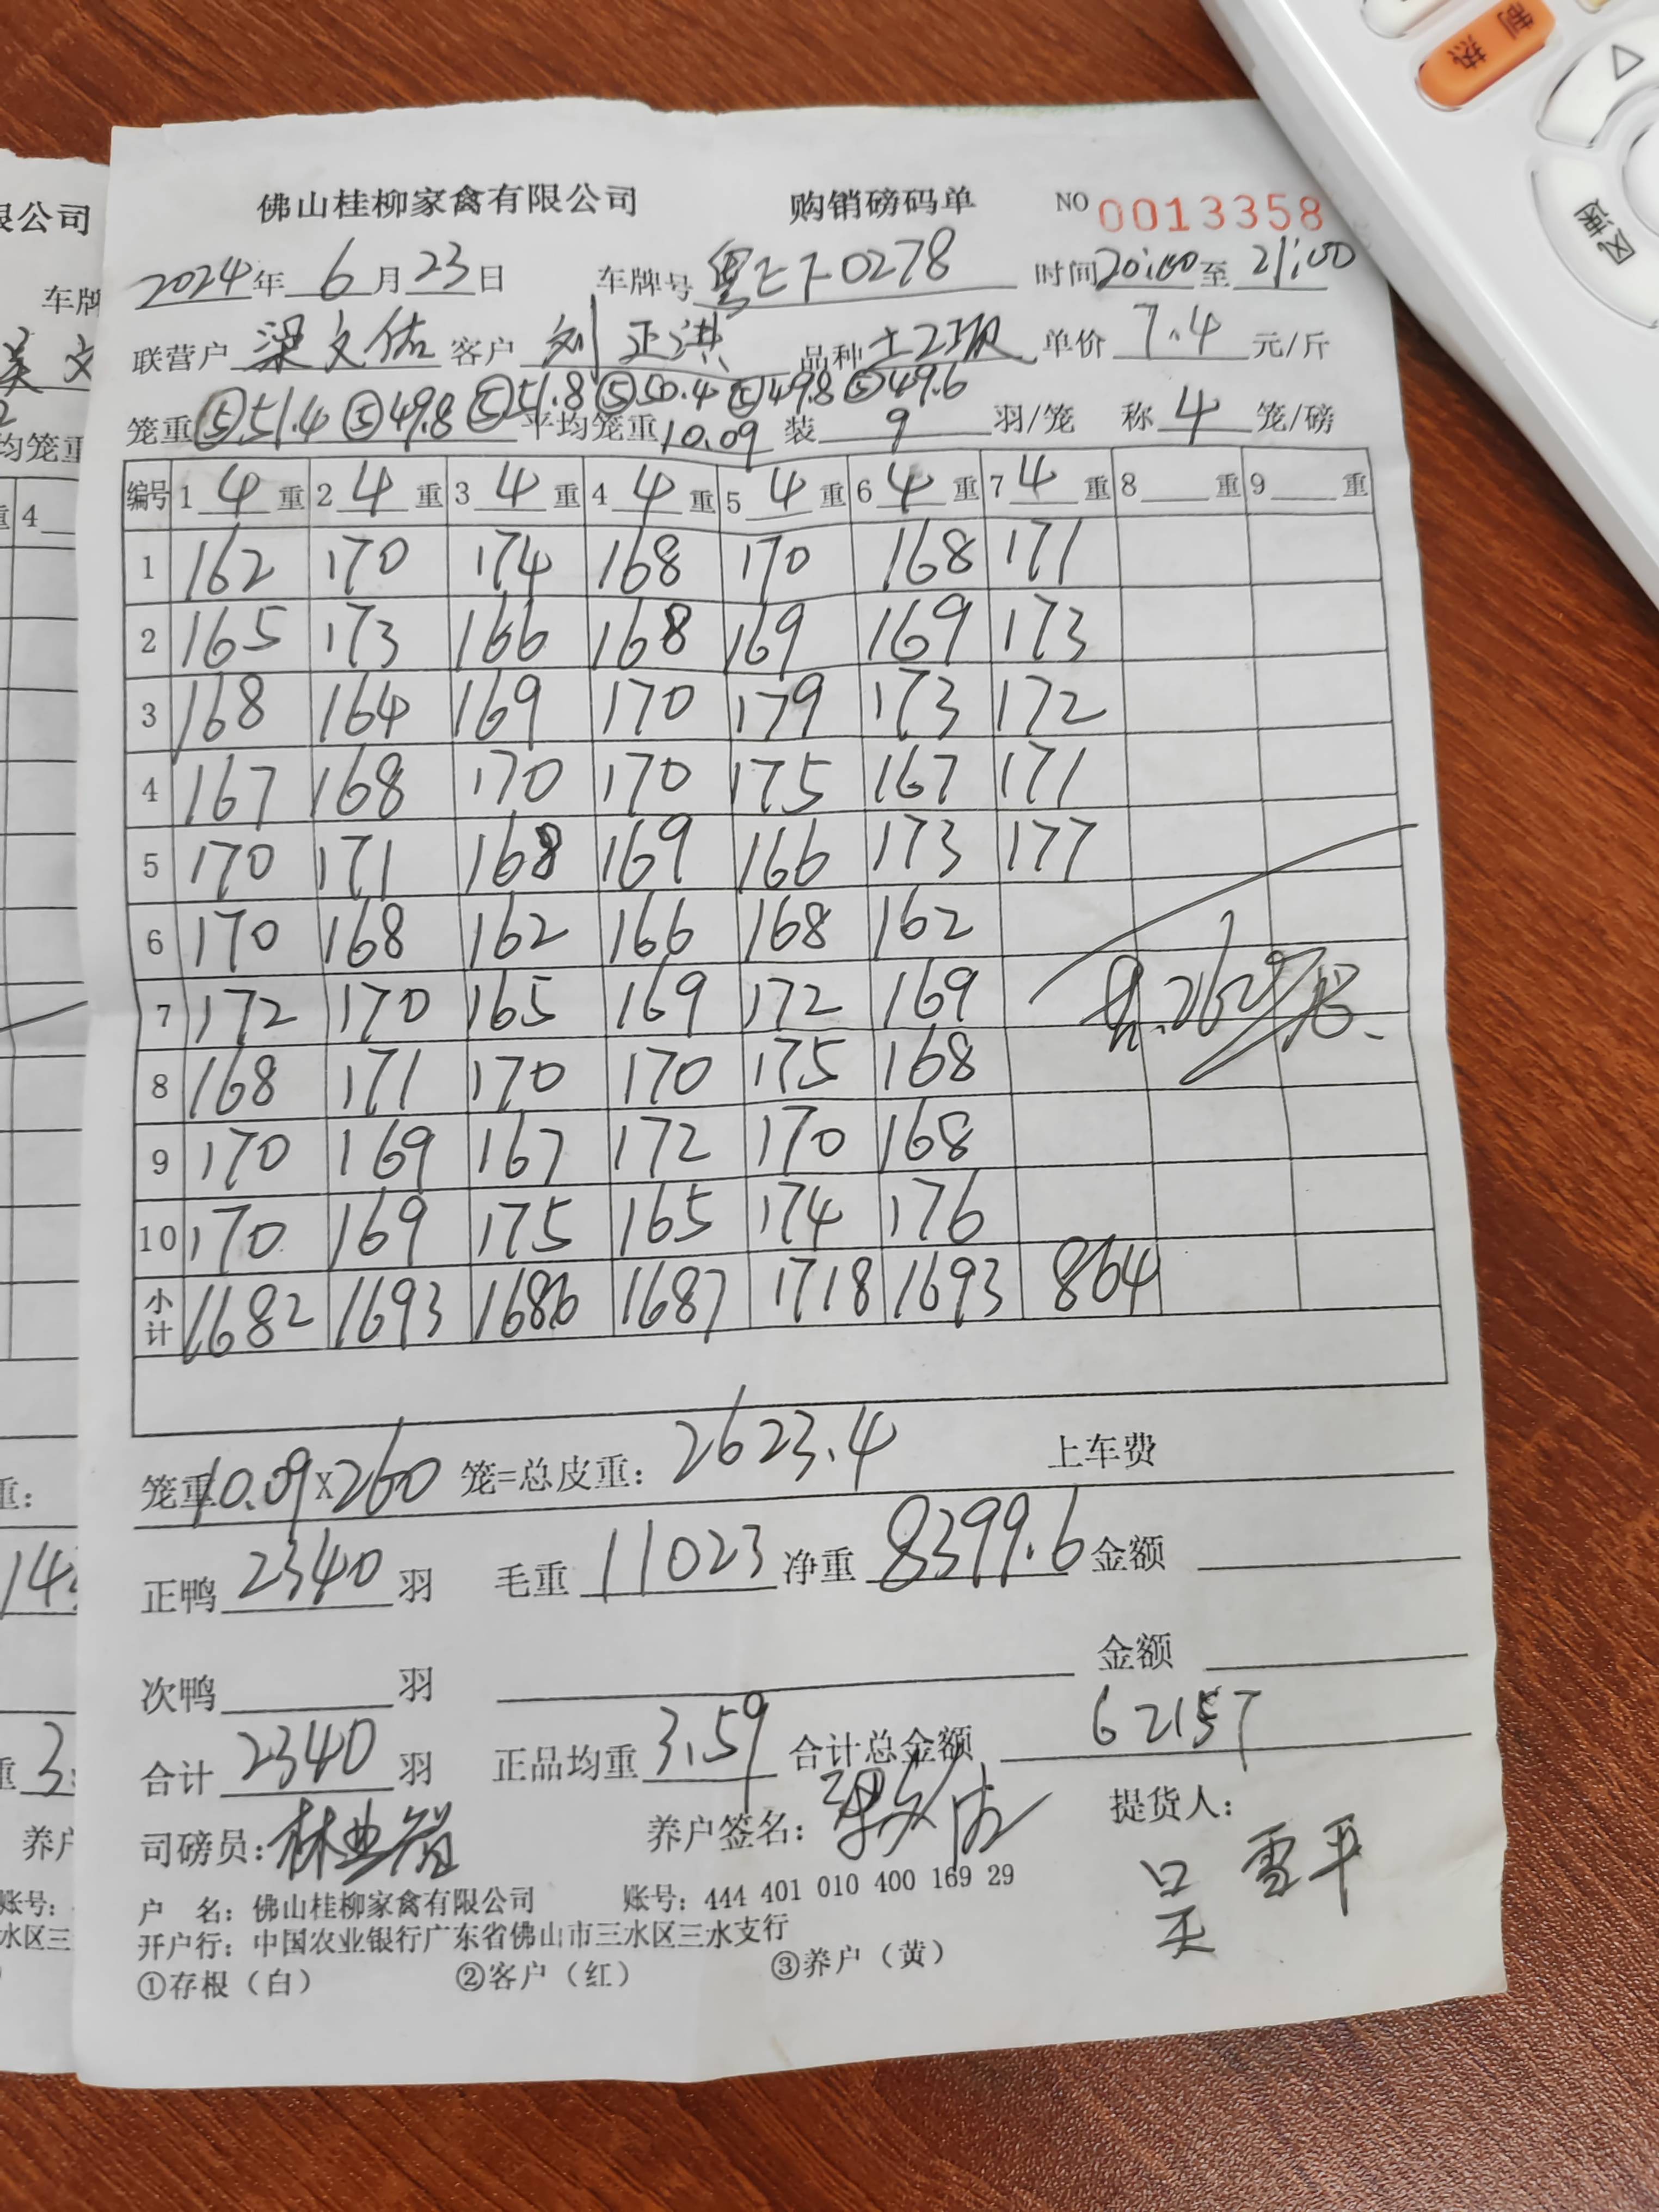 佛山桂柳家禽有限公司 购销磅码单 NO 0013358
2024年 6月23日 车牌号 粤E 0278 时间20:00至21:00
联营户 梁文佑 客户 刘正洪 品种 单价 7.4 元/斤
⑤51.4 ⑤49.8 ⑤51.8 ⑤50.4 ⑤49.8 ⑤49.6
笼重 平均笼重10.09 装 9 羽/笼 称 4 笼/磅
编号 1 4 重 2 4 重 3 4 重 4 4 重 5 4 重 6 4 重 7 4 重 8 重 9 重
1 162 170 174 168 170 168 171
2 165 173 166 168 169 169 173
3 168 164 169 170 179 173 172
4 167 168 170 170 175 167 171
5 170 171 168 169 166 173 177
6 170 168 162 166 168 162
7 172 170 165 169 172 169
8 168 171 170 170 175 168
9 170 169 167 172 170 168
10 170 169 175 165 174 176
小计 1682 1693 1686 1687 1718 1693 864
笼重10.09×260 笼=总皮重: 2623.4 上车费
正鸭 2340 羽 毛重 11023 净重 8399.6 金额
次鸭 羽 金额
合计 2340 羽 正品均重 3.59 合计总金额 62157
司磅员: 养户签名: 提货人:
吴雪平
户 名: 佛山桂柳家禽有限公司 账号: 444 401 010 400 169 29
开户行: 中国农业银行广东省佛山市三水区三水支行
①存根(白) ②客户(红) ③养户(黄)
限公司
车牌
均笼重
重 4
重:
养户
账号:
水区三
制热
风速